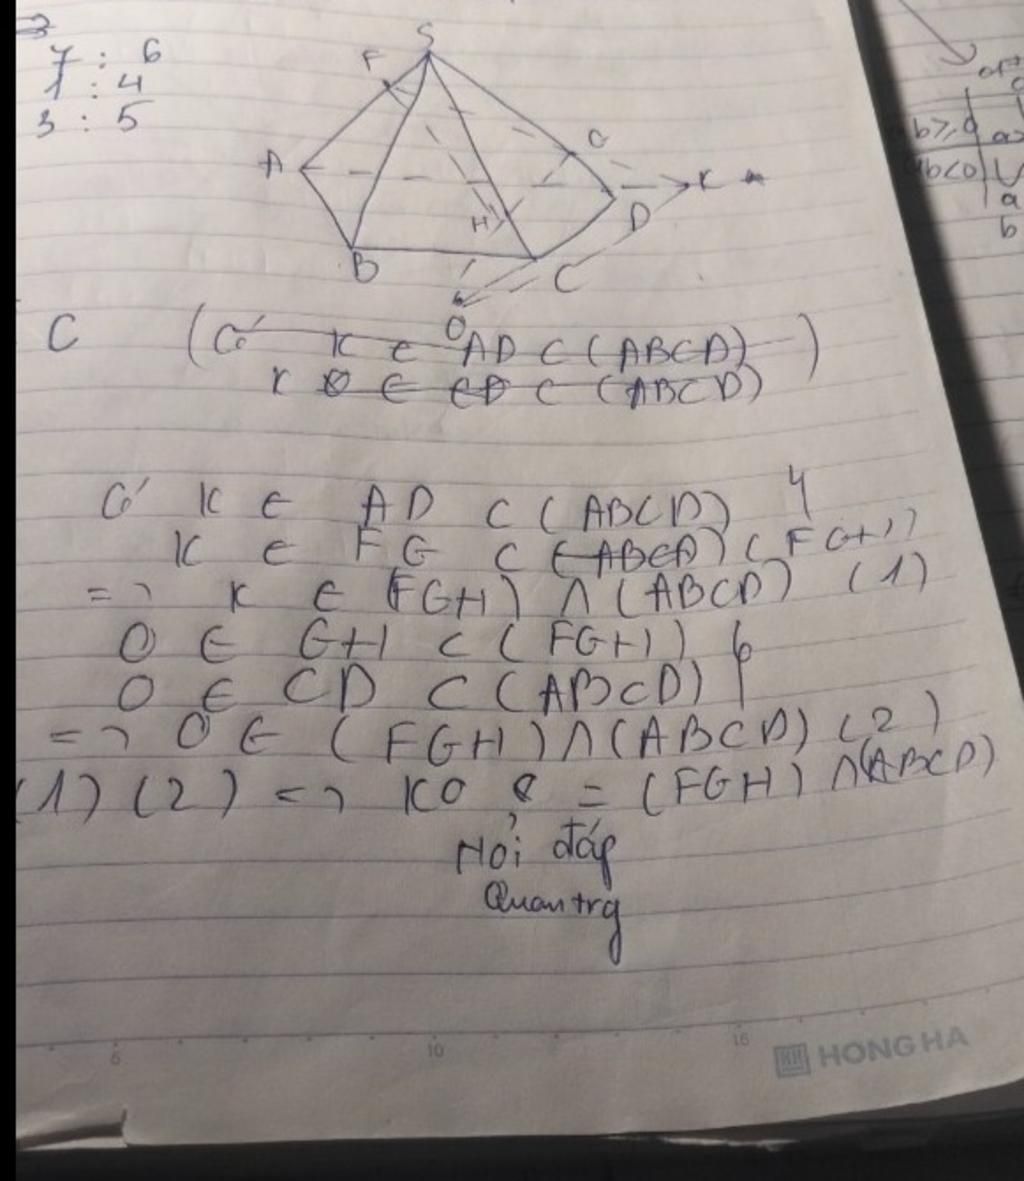 7 : 6
1 : 4
3 : 5
S
F
A
G
K
H
D
B
C
O
b≥0
ab<0
a
b
C (Có K ∈ AD ⊂ (ABCD) )
K O ∈ CD ⊂ (ABCD)
Có K ∈ AD ⊂ (ABCD) 4
K ∈ FG ⊂ (ABCD) (FGH)
=> K ∈ (FGH) ∩ (ABCD) (1)
O ∈ GH ⊂ (FGH)
O ∈ CD ⊂ (ABCD)
=> O ∈ (FGH) ∩ (ABCD) (2)
(1) (2) => KO = (FGH) ∩ (ABCD)
Hỏi đáp
Quantrg
6 10 16
HH HONG HA